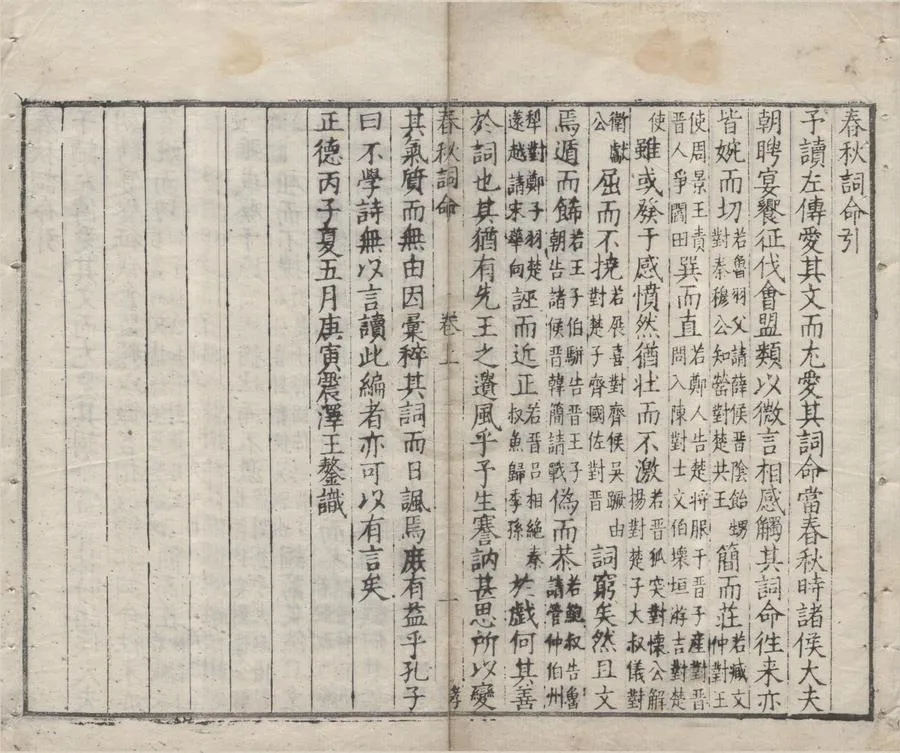 春秋詞命引
予讀左傳愛其文而尤愛其詞命當春秋時諸侯大夫
朝聘宴饗征伐會盟類以微言相感觸其詞命往来亦
皆婉而切若魯羽父請薛侯晉陰飴甥對秦穆公知罃對楚共王簡而莊若臧文仲對王
使周景王責晉人爭閻田巽而直若鄭人告楚將服于晉子産對晉問入陳對士文伯壞垣游吉對楚
使雖或發于感憤然猶壯而不激若晉狐突對懷公解揚對楚子大叔儀對
衛獻公屈而不撓若展喜對齊侯吴蹶由對楚子齊國佐對晉詞窮矣然且文
焉遁而飾若王子伯駢告晉王子朝告諸侯晉韓簡請戰偽而恭若鮑叔告魯請管仲伯州
犂對鄭子羽楚薳越請宋華向誣而近正若晉吕相絶秦叔魚歸季孫於戲何其善
於詞也其猶有先王之遺風乎予生謇訥甚思所以變
春秋詞命 卷上 一
其氣質而無由因彙稡其詞而日諷焉庶有益乎孔子
曰不學詩無以言讀此編者亦可以有言矣
正德丙子夏五月庚寅震澤王鏊識